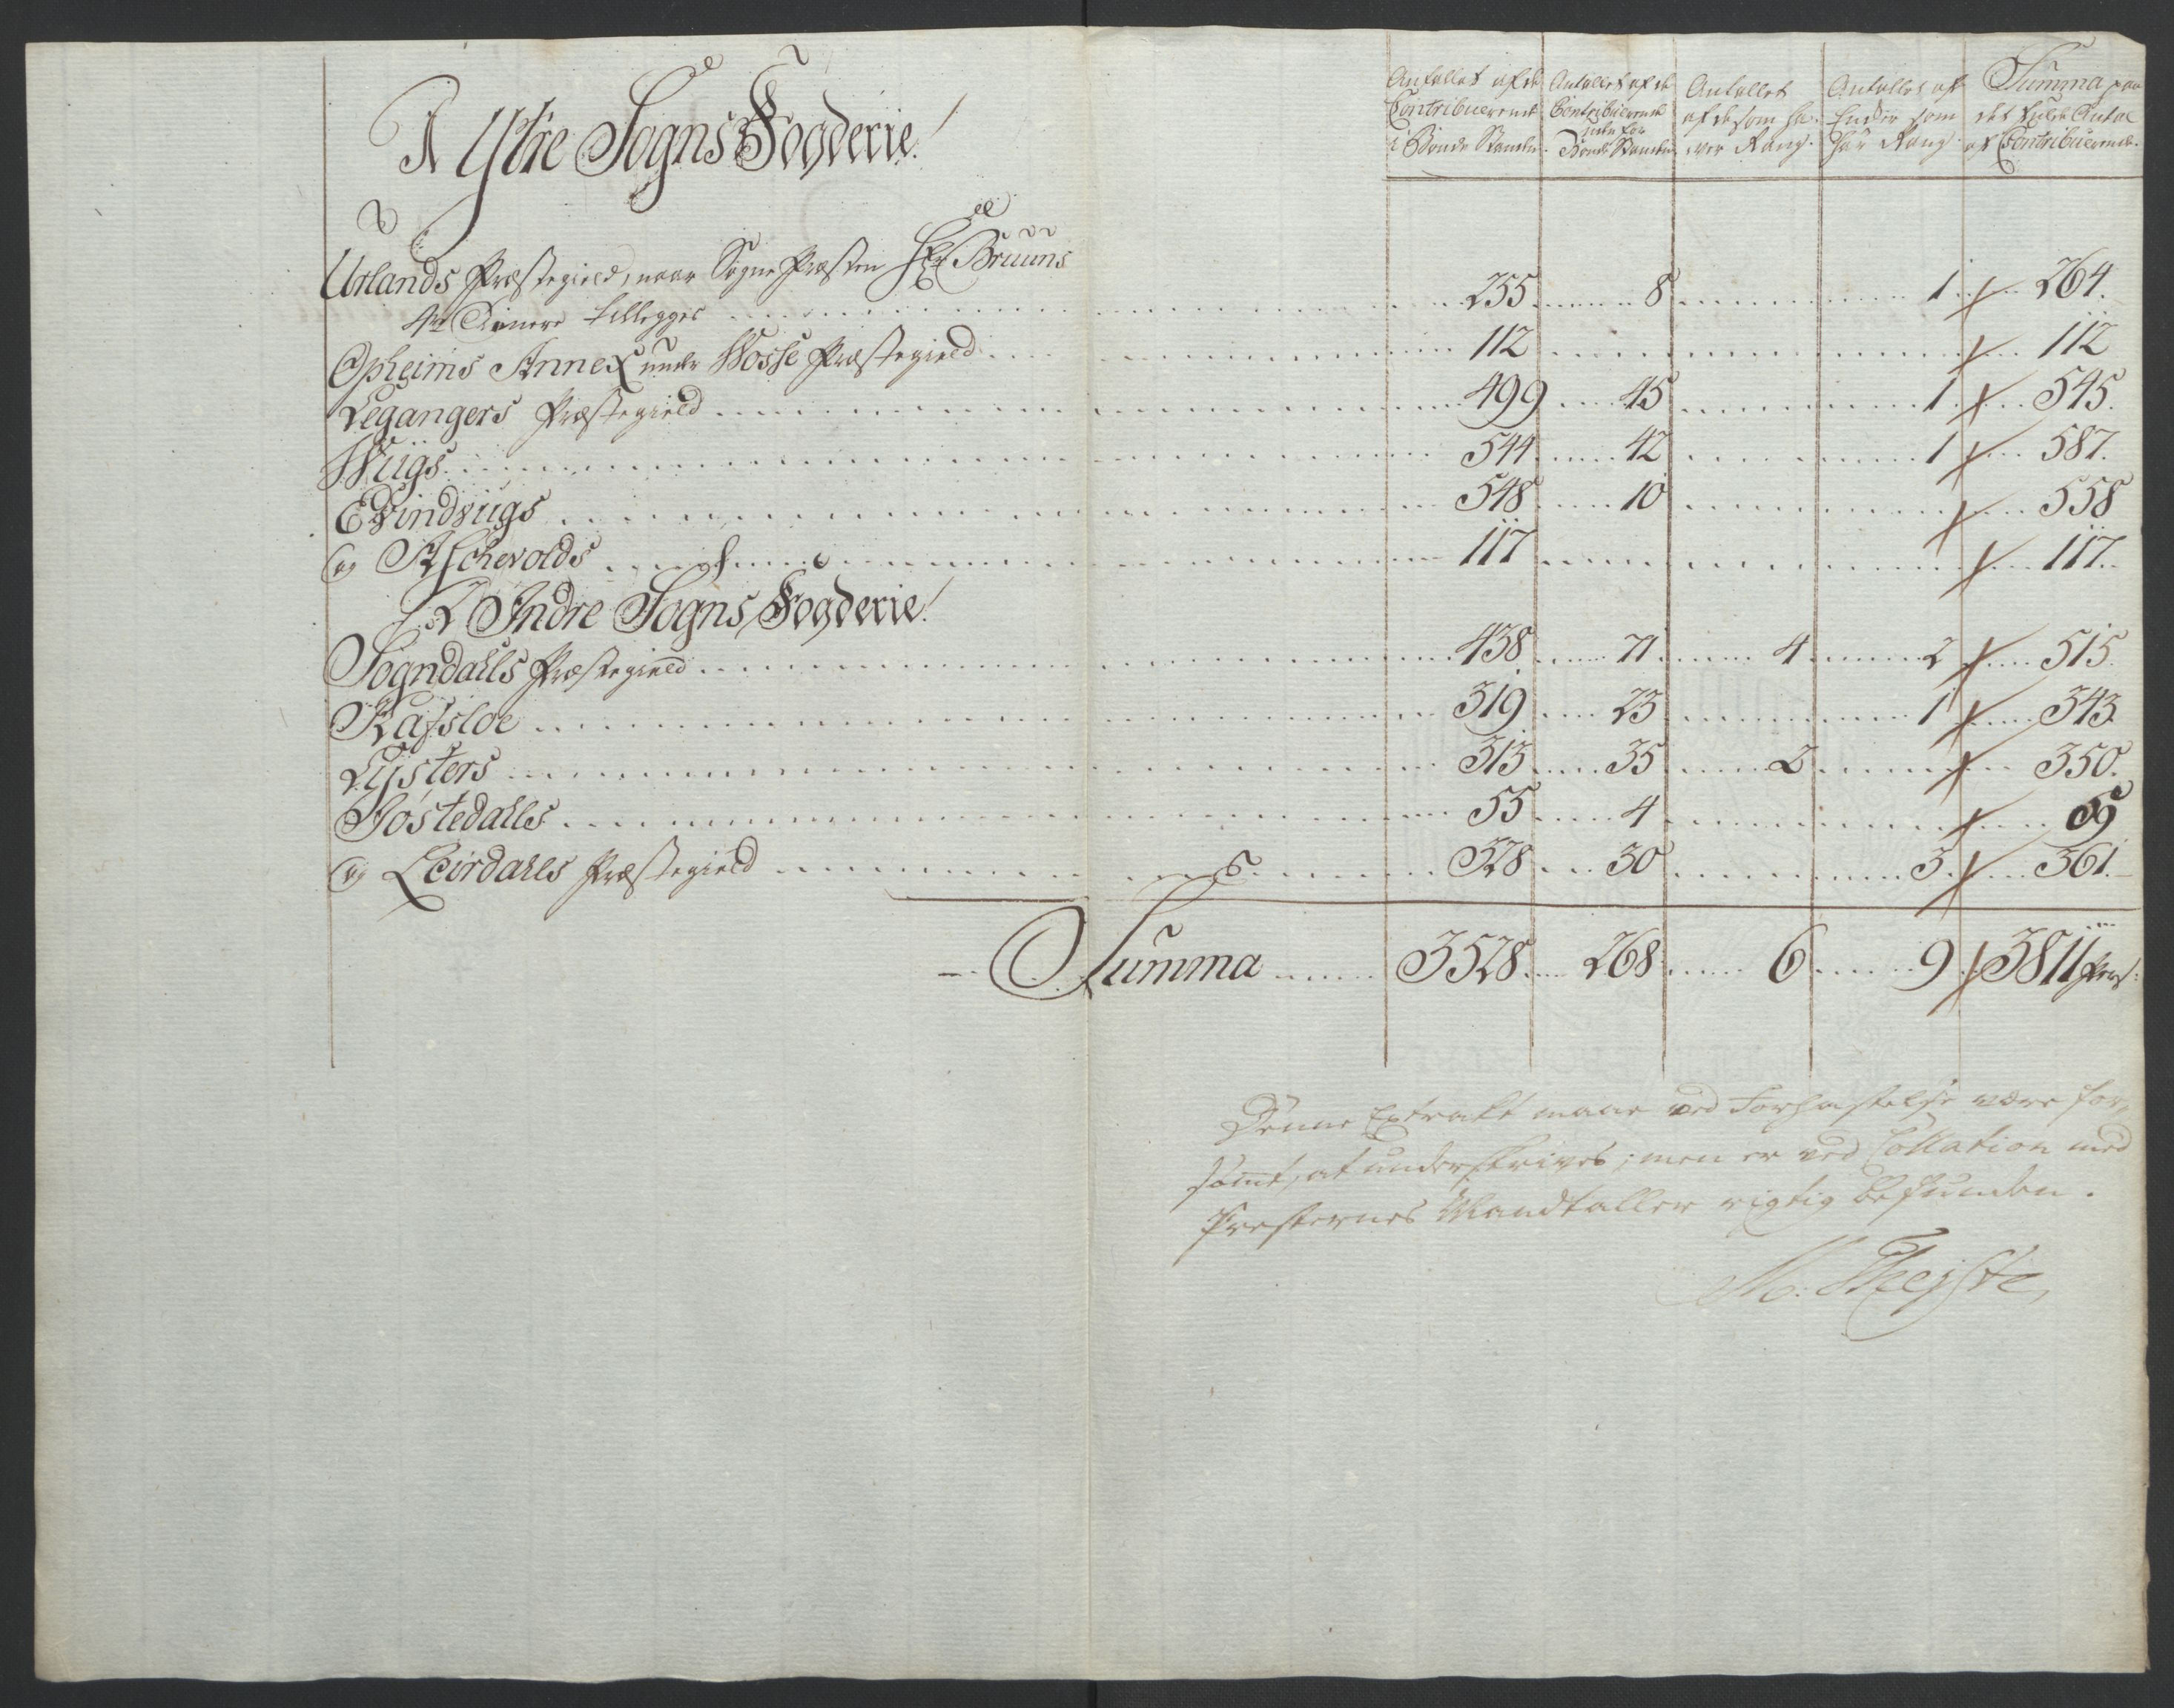 Antallet af de Contribuerende i Bonde Standen.
Antallet af de Contribuerende uden for Bonde Standen
Antallet af de som haver Rang.
Antallet af Enker som har Rang
Summa paa det fulde Antal af Contribuerende.
I Ytre Sogns Fogderie!
Urlands Præstegield, naar Sogne Præsten Hr Bruuns
4re Tienere tillegges 255 8 1 264.
Opheims Annex under Wosse Præstegield 112 112
Legangers Præstegield 499 45 1 545.
Wiigs 544 42 1 587.
Evindvigs 548 10 558
og Aschevolds 117 117.
I Indre Sogns Fogderie!
Sogndahls Præstegield 438 71 4 2 515.
Hafsloe 319 23 1 343.
Lysters 313 35 2 350.
Jostedahls 55 4 59
og Leirdahls Præstegield 328 30 3 361.
Summa 3528 268 6 9 3811 Pers:
Denne Extrakt maae ved Forhastelse være for-
sømt, at underskrives; men er ved Collation med
Presternes Mandtaller rigtig befunden.